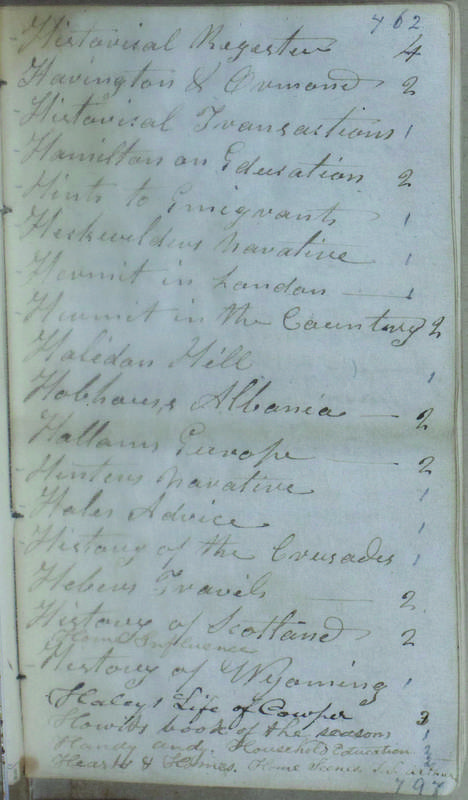 762
Historical Register 4
Harington & Ormond 2
Historical Transactions 1
Hamilton on Education 2
Hints to Emigrants 1
Heckwelders Narative 1
Hermit in London — 1
Hermit in the Country 2
Halidon Hill 1
Hobhouses Albania — 2
Hallams Europe — 2
Hunters Narative 1
Hales Advice 1
History of the Crusades 1
Hebers Travels — 2
History of Scotland 2
Home Influence
History of Wyoming 1
Haleys Life of Cowper 3
Howitts book of the seasons 1
Handy andy. Household Education 2
Hearts & Homes. Home Scenes
797